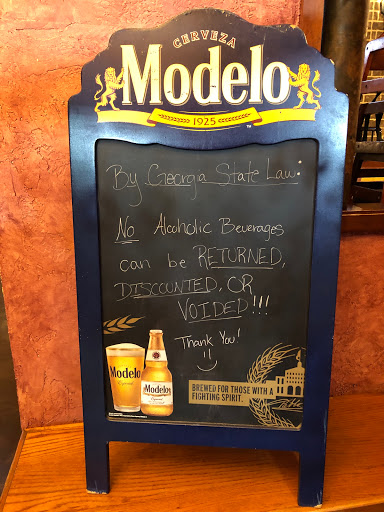 CERVEZA
Modelo
1925
By Georgia State Law:
No Alcoholic Beverages
can be RETURNED,
DISCOUNTED, OR
VOIDED!!!
Thank You!
Modelo
Especial
Modelo
Especial
BREWED FOR THOSE WITH A
FIGHTING SPIRIT.